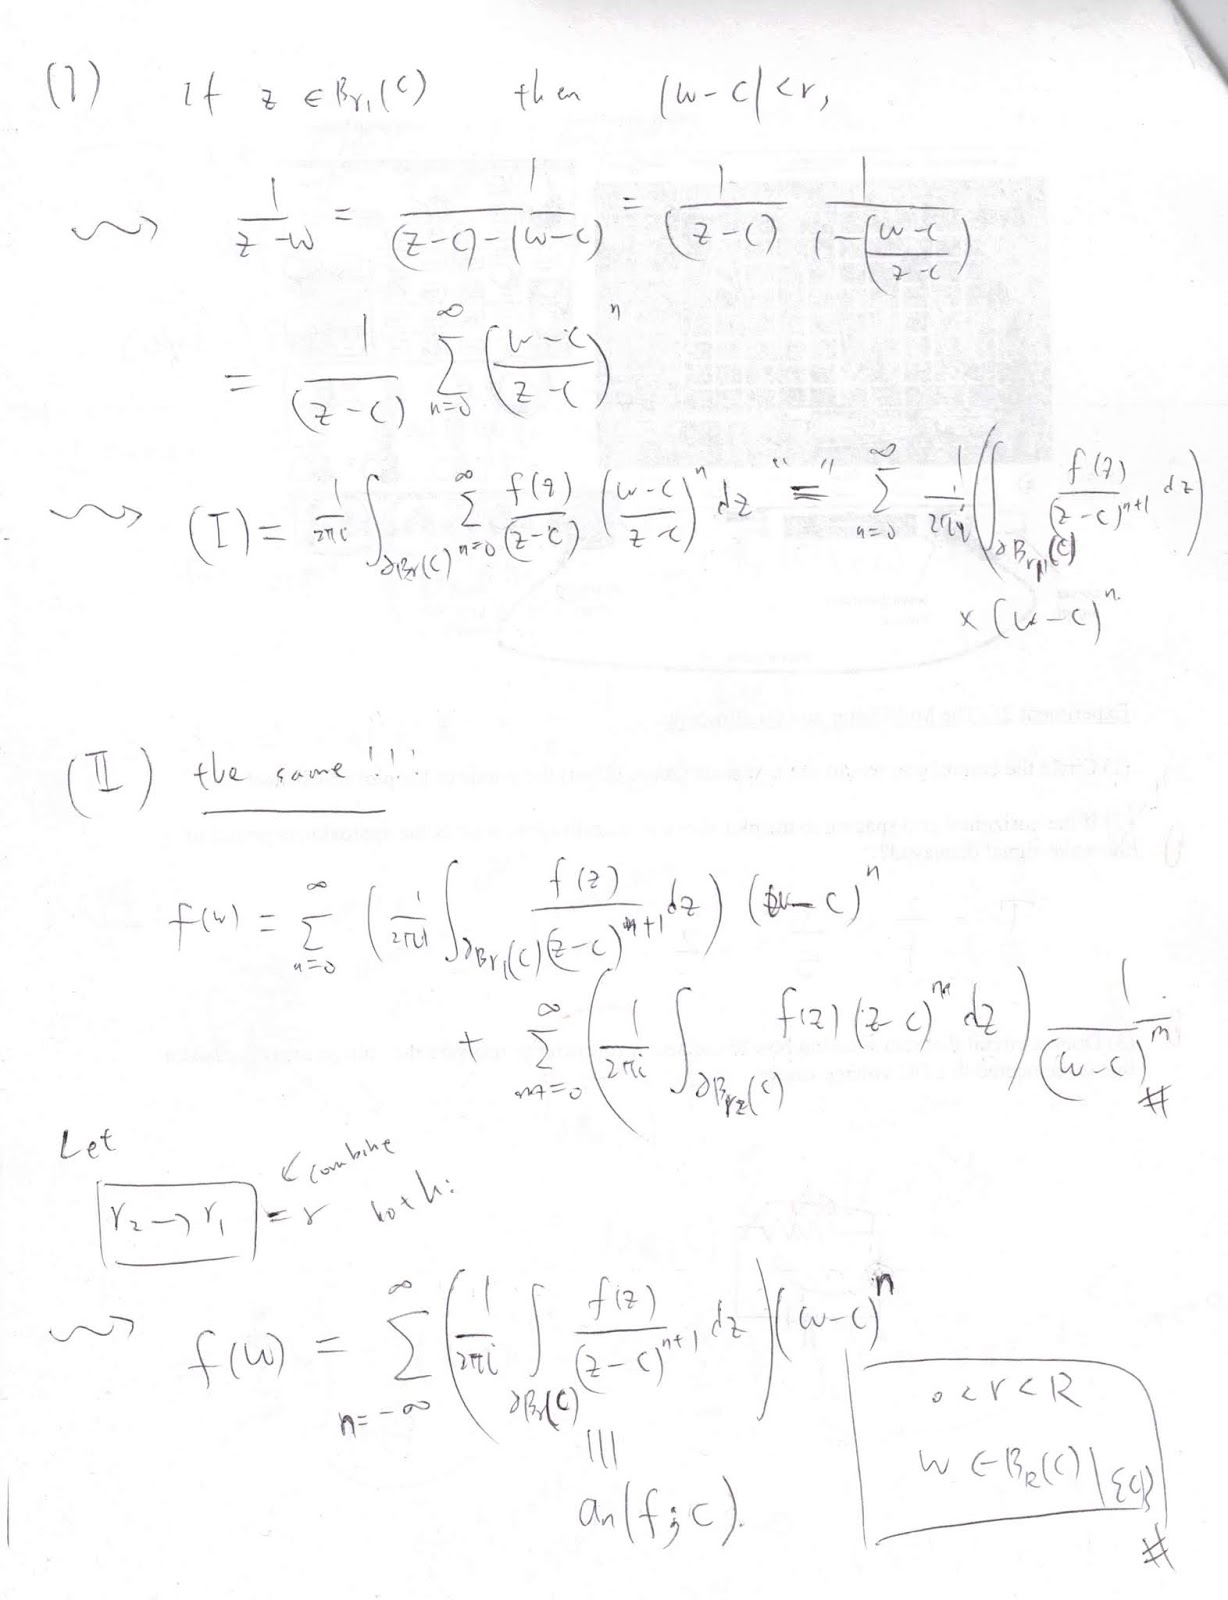 (I) If z ∈ Br₁(c) then |w-c| < r₁
⇝ 1/(z-w) = 1/((z-c)-(w-c)) = 1/(z-c) 1/(1-((w-c)/(z-c)))
= 1/(z-c) ∑_{n=0}^{∞} ((w-c)/(z-c))^n
⇝ (I) = 1/(2πi) ∫_{∂Br(c)} ∑_{n=0}^{∞} f(z)/(z-c) ((w-c)/(z-c))^n dz "=" ∑_{n=0}^{∞} 1/(2πi) (∫_{∂Br₁(c)} f(z)/(z-c)^{n+1} dz)
× (w-c)^n
(II) the same!!!
f(w) = ∑_{n=0}^{∞} (1/(2πi) ∫_{∂Br₁(c)} f(z)/(z-c)^{n+1} dz) (w-c)^n
+ ∑_{m=0}^{∞} (1/(2πi) ∫_{∂Br₂(c)} f(z)(z-c)^m dz) 1/(w-c)^m #
Let
r₂ → r₁ = r ← combine both:
⇝ f(w) = ∑_{n=-∞}^{∞} (1/(2πi) ∫_{∂Br(c)} f(z)/(z-c)^{n+1} dz) (w-c)^n
0 < r < R
|||
w ∈ B_R(c) \ {c}
an(f; c).
#